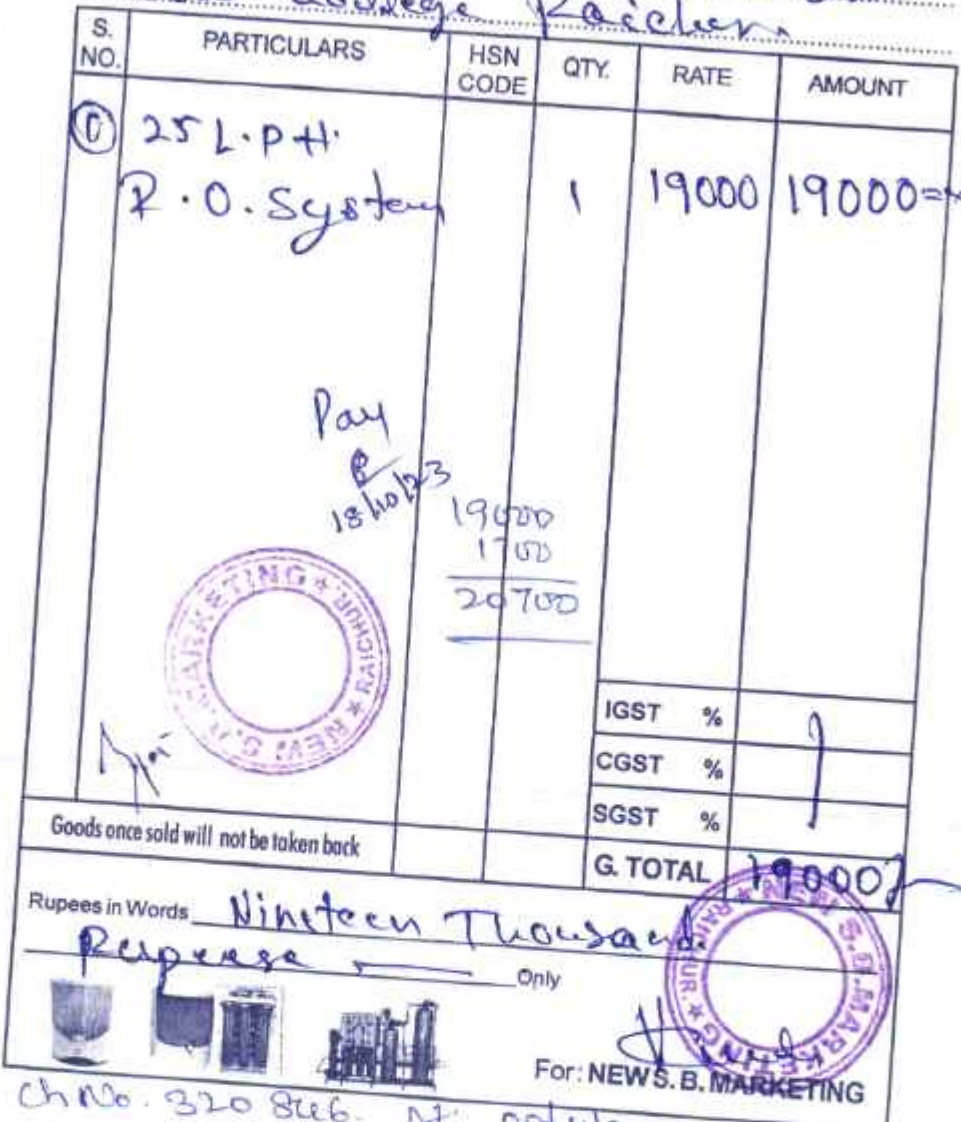 Raichur
S. NO. PARTICULARS HSN CODE QTY. RATE AMOUNT
① 25 L.P.H.
R.O. System 1 19000 19000=
Pay
18/10/23
19000
1700
20700
MARKETING * RAICHUR * NEW S.B.
IGST %
CGST %
SGST %
Goods once sold will not be taken back
G. TOTAL 19000/-
Rupees in Words Nineteen Thousand
Rupeese Only
S.B. MARKETING * RAICHUR. *
For: NEW S. B. MARKETING
Ch No. 320846. Dt.